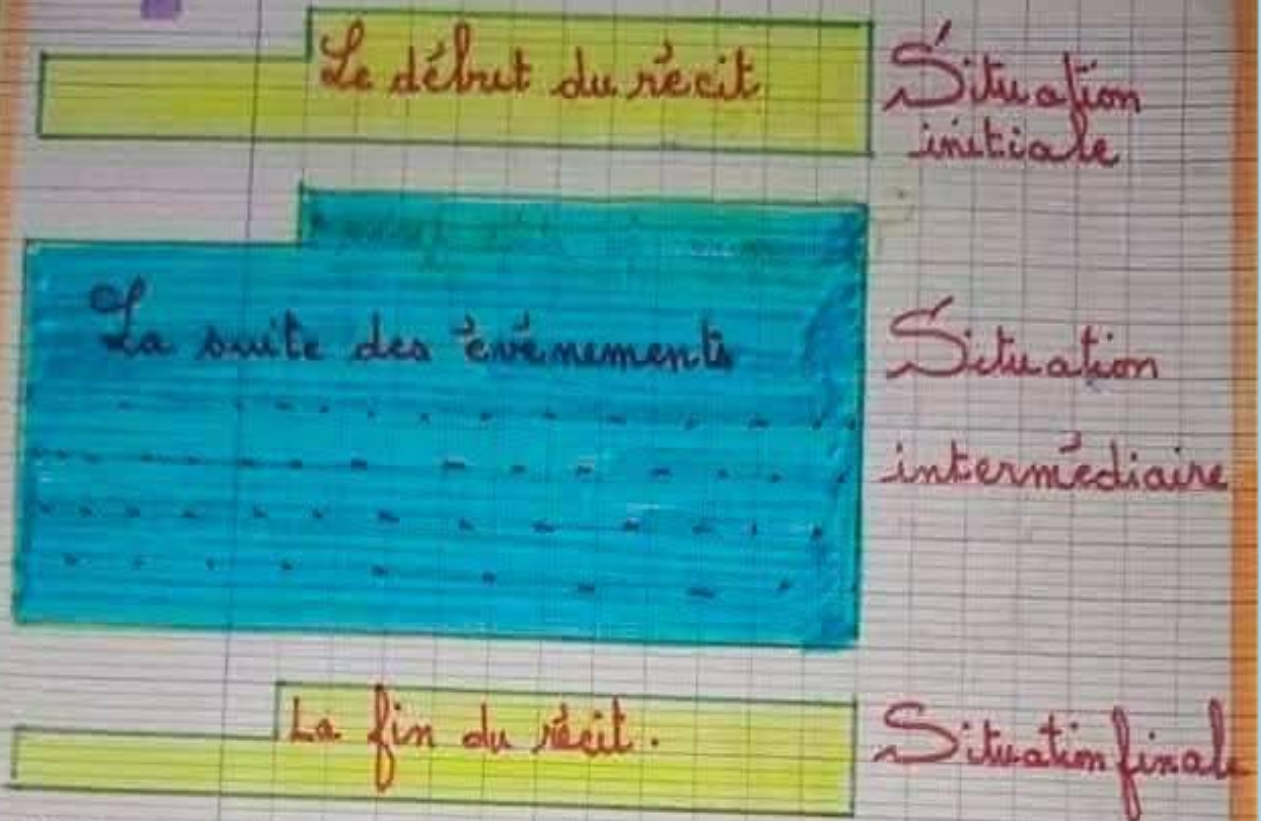 Le début du récit
Situation
initiale
La suite des événements
Situation
intermédiaire
La fin du récit.
Situation finale